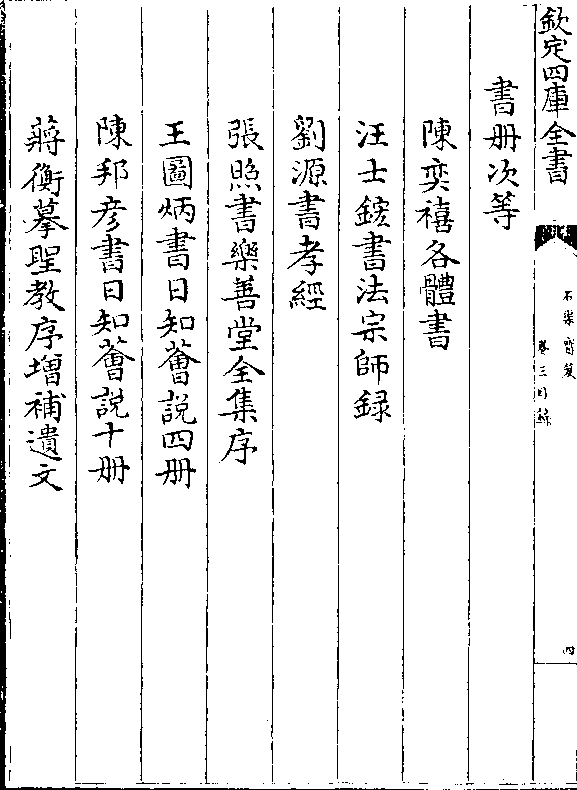 欽定四庫全書
石渠寶笈
卷三目録
四
書册次等
陳奕禧各體書
汪士鋐書法宗師録
劉源書孝經
張照書樂善堂全集序
王圖炳書日知薈説四册
陳邦彦書日知薈説十册
蔣衡摹聖教序增補遺文